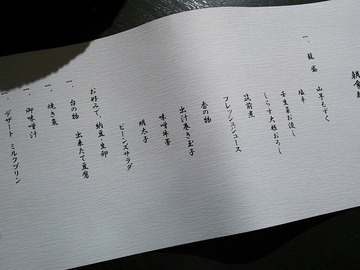 朝食
一、籠盛　山芋もずく
塩辛
壬生菜お浸し
しらす大根おろし
筑前煮
フレッシュジュース
香の物
出汁巻き玉子
吟味牛蒡
明太子
ビーンズサラダ
お好みで、納豆生卵
一、台の物　出来たて豆腐
一、焼き魚
一、御味噌汁
、デザート　ミルクプリン